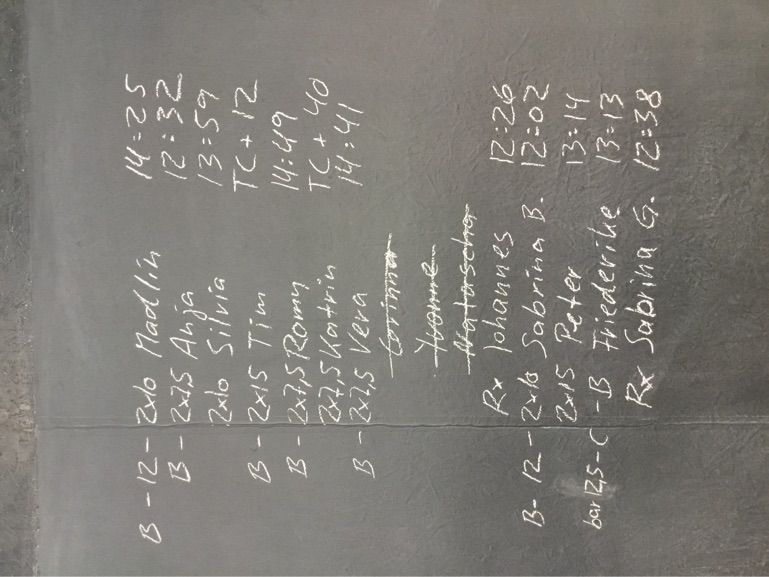 B - 12 - 2x10 Madlin 14:25
B - 2x7,5 Anja 12:32
2x10 Silvia 13:59
B - 2x15 Tim TC + 12
B - 2x7,5 Romy 14:49
2x7,5 Katrin TC + 40
B - 2x7,5 Vera 14:41
Corinna
Yvonne
Natascha
Rx Johannes 12:26
B - 12 - 2x10 Sabrina B. 12:02
2x15 Peter 13:14
bar 12,5 - C - B Friederike 13:13
Rx Sabrina G. 12:38